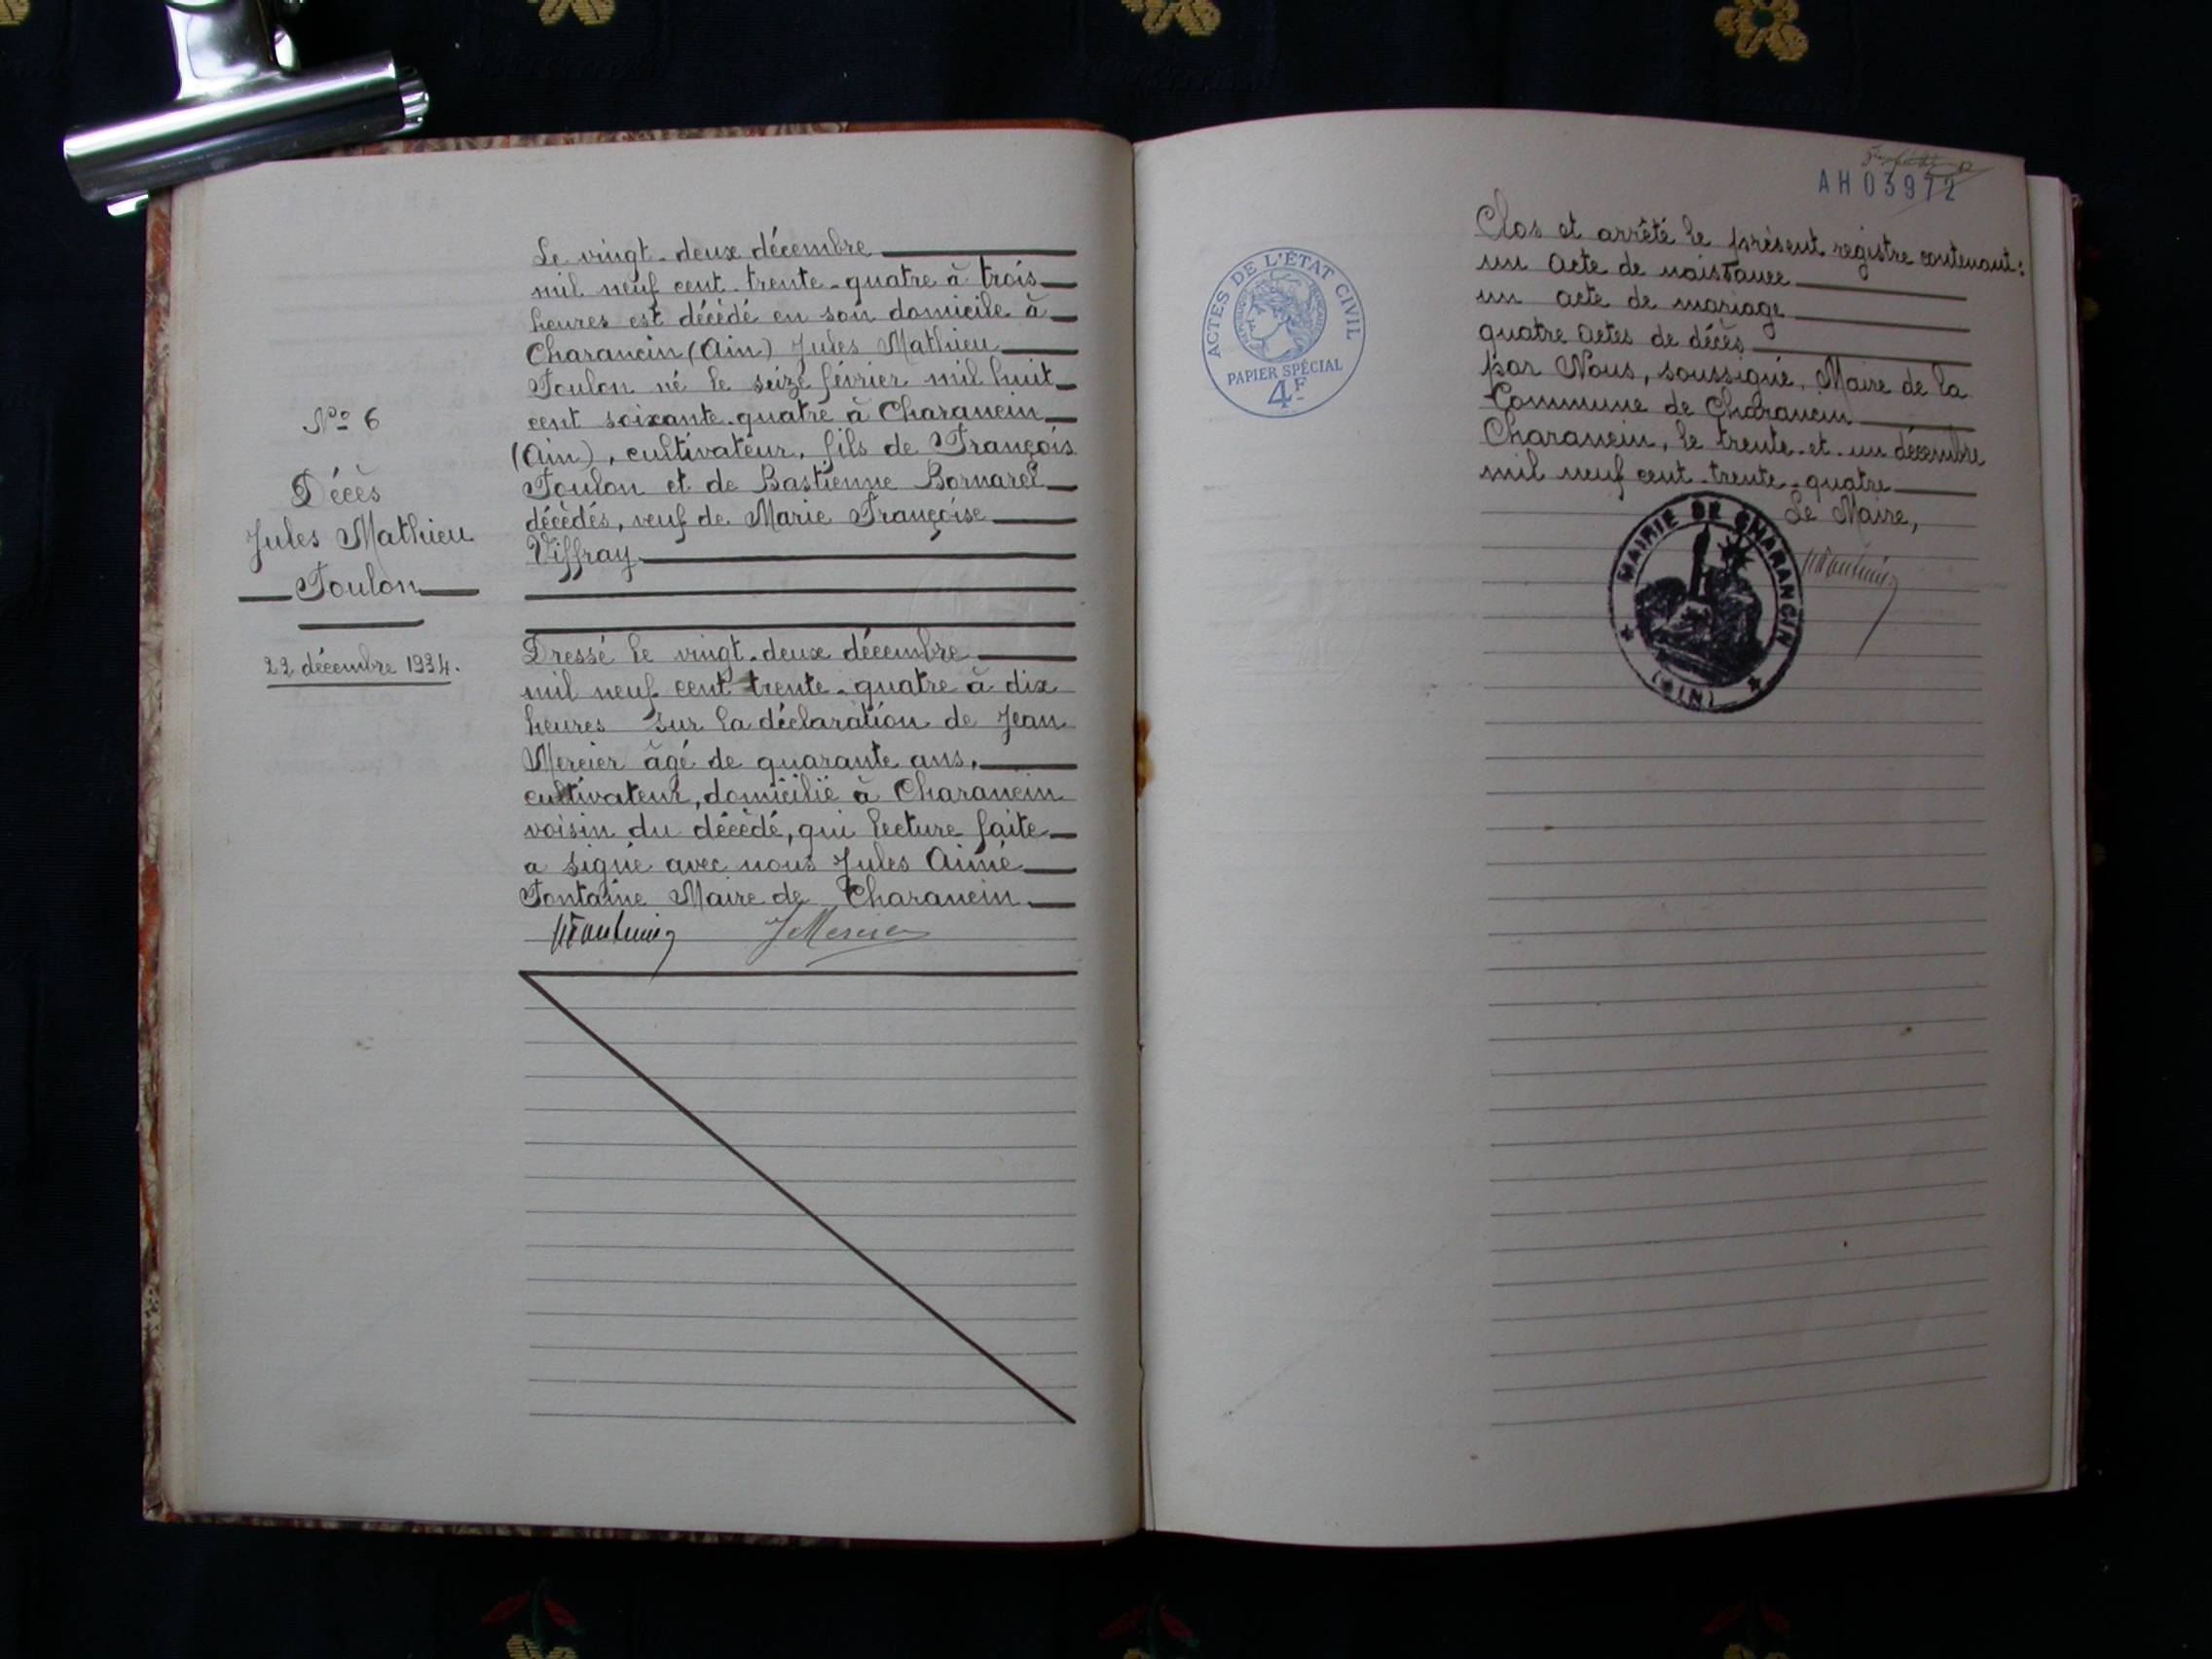 Nº 6
Décès
Jules Mathieu
Foulon
22 décembre 1934.
Le vingt-deux décembre
mil neuf cent trente-quatre à trois
heures est décédé en son domicile à
Charancin (Ain) Jules Mathieu
Foulon né le seize février mil huit
cent soixante-quatre à Charancin
(Ain), cultivateur, fils de François
Foulon et de Bastienne Bornarel
décédés, veuf de Marie Françoise
Viffray
Dressé le vingt-deux décembre
mil neuf cent trente-quatre à dix
heures sur la déclaration de Jean
Mercier âgé de quarante ans,
cultivateur, domicilié à Charancin
voisin du décédé, qui lecture faite
a signé avec nous Jules Aimé
Fontaine Maire de Charancin.
JMercier
AH03972
ACTES DE L'ÉTAT CIVIL
RÉPUBLIQUE FRANÇAISE
PAPIER SPÉCIAL
4F
Clos et arrêté le présent registre contenant:
un acte de naissance
un acte de mariage
quatre actes de décès
par Nous, soussigné, Maire de la
Commune de Charancin
Charancin, le trente-et-un décembre
mil neuf cent trente-quatre
Le Maire,
MAIRIE DE CHARANCIN
(AIN)